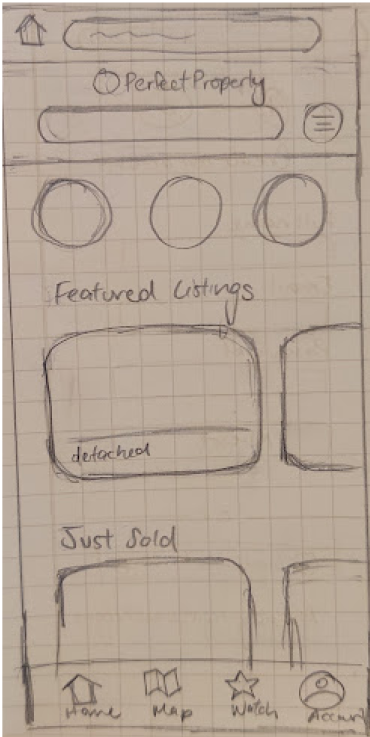 PerfectProperty
Featured Listings
detached
Just Sold
Home Map Watch Account